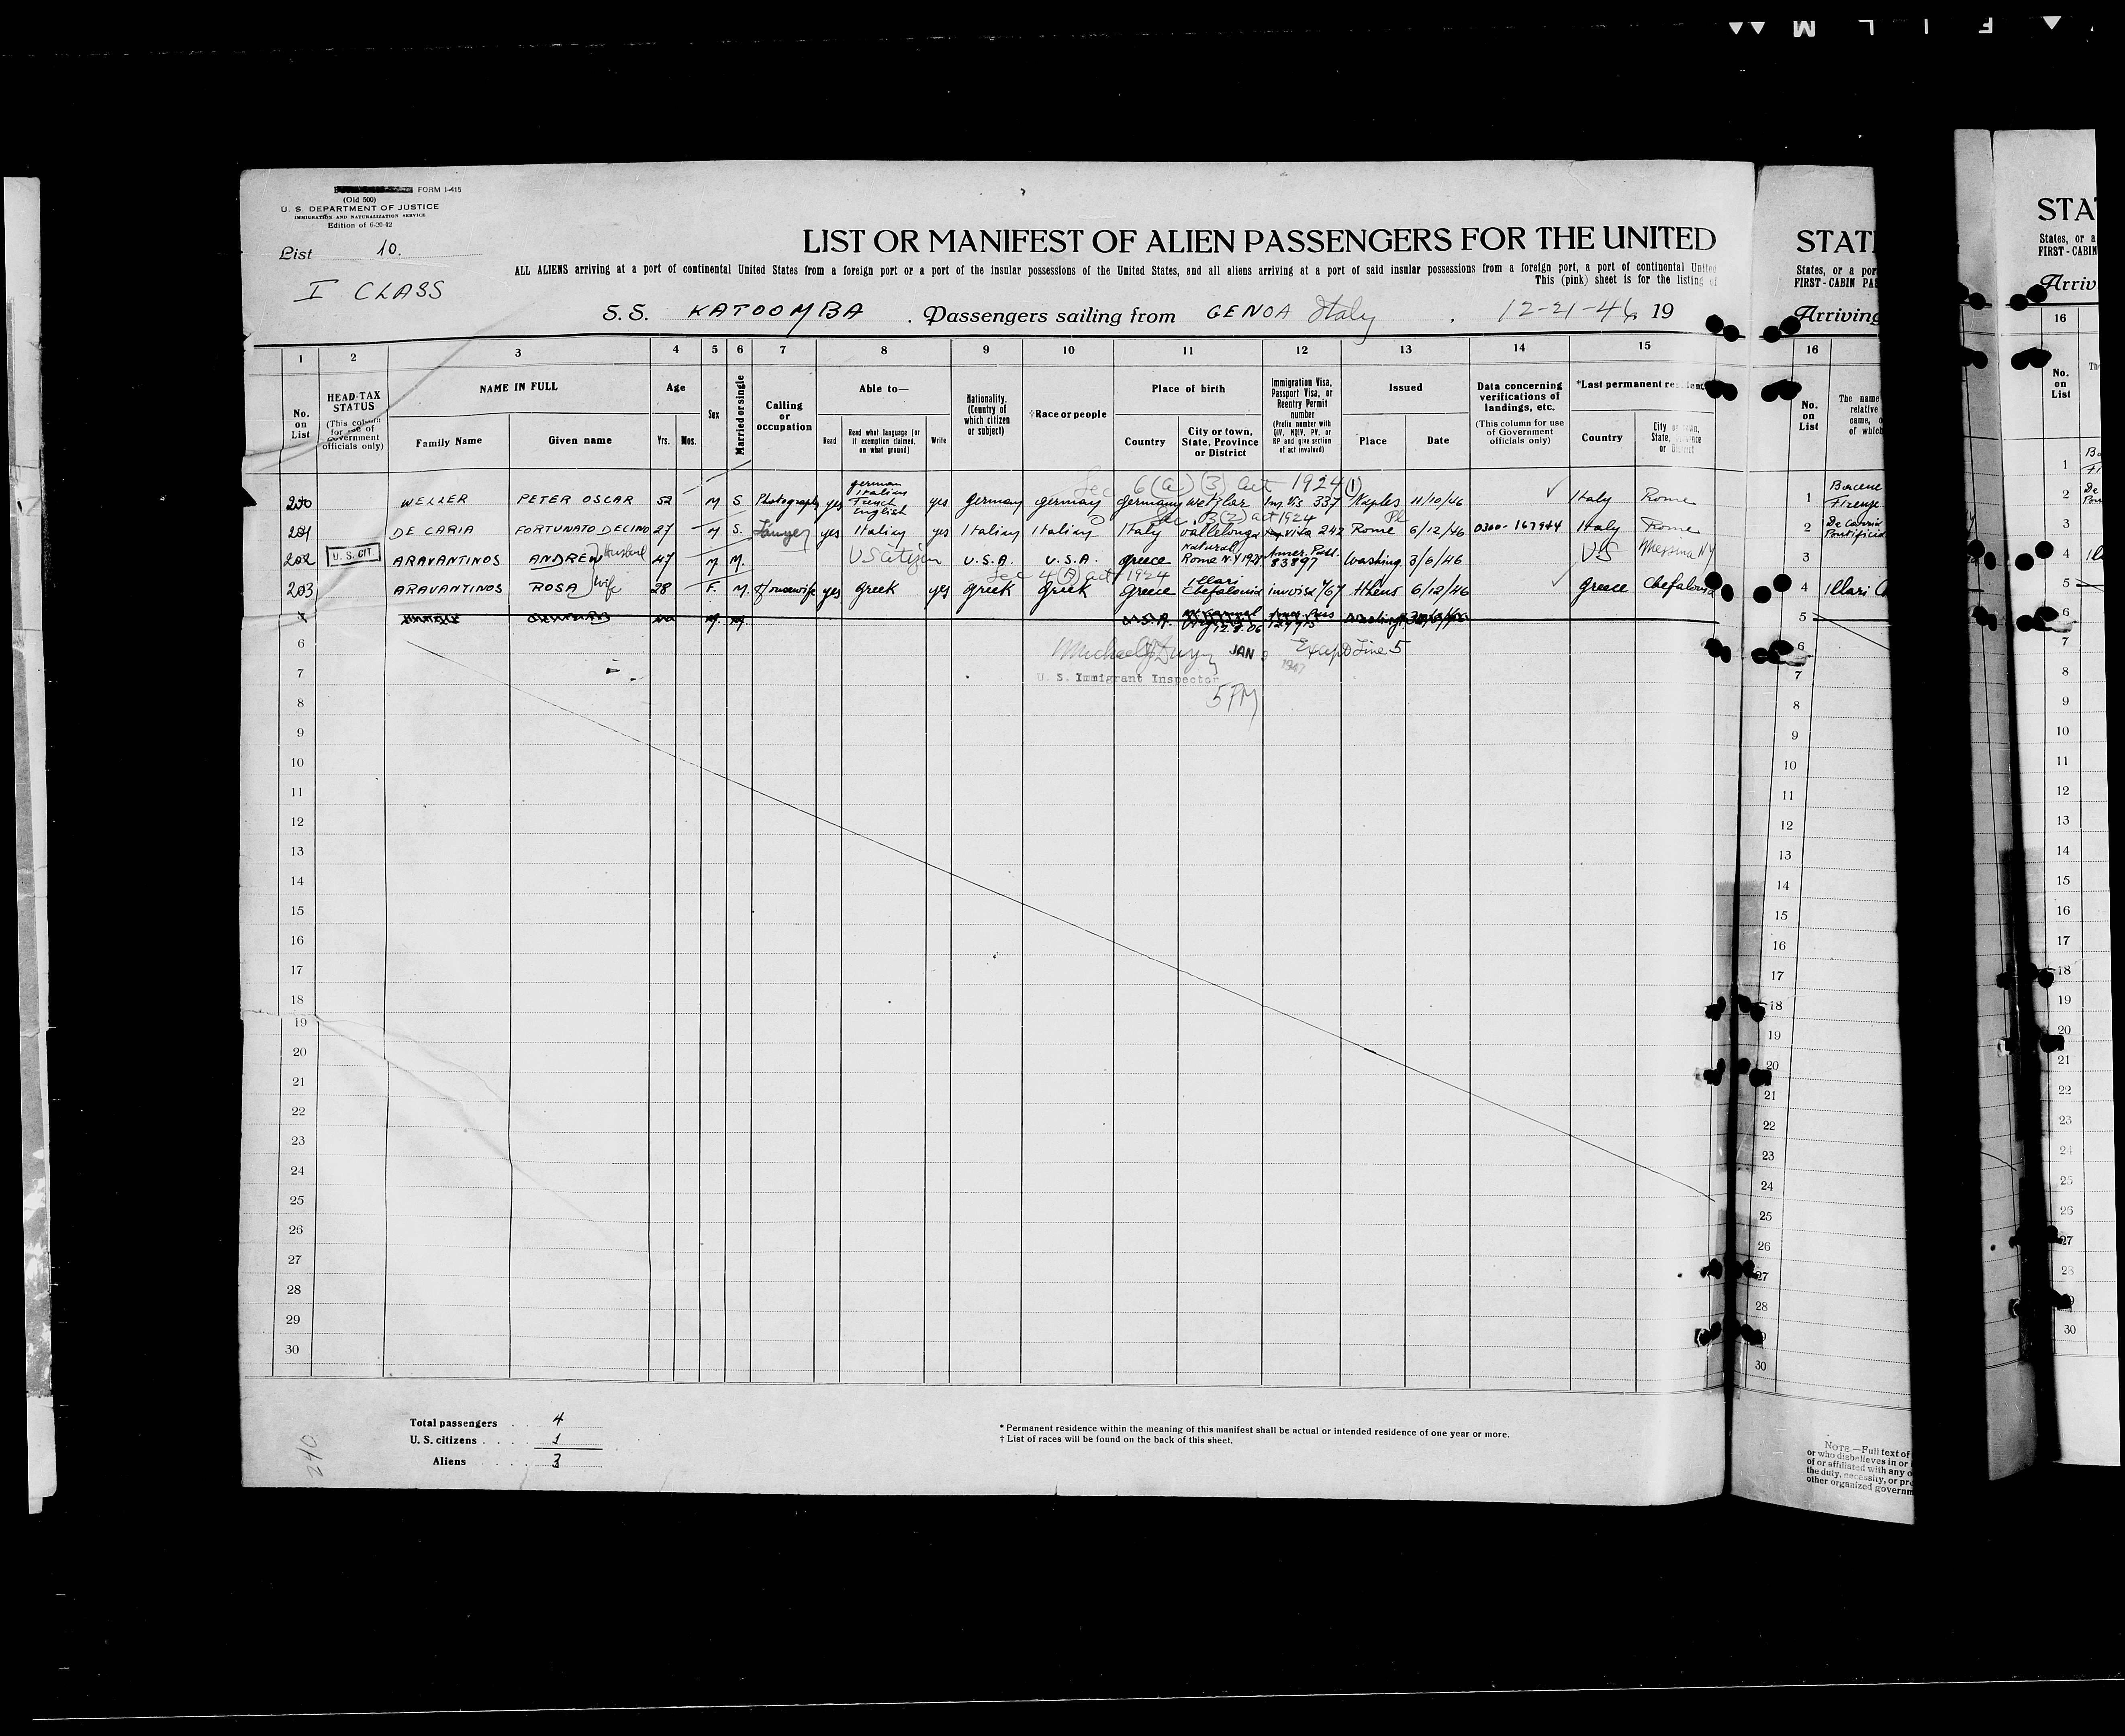 FILM
FORM I-415
(Old 500)
U. S. DEPARTMENT OF JUSTICE
IMMIGRATION AND NATURALIZATION SERVICE
Edition of 6-20-42
List 10.
I CLASS
LIST OR MANIFEST OF ALIEN PASSENGERS FOR THE UNITED
ALL ALIENS arriving at a port of continental United States from a foreign port or a port of the insular possessions of the United States, and all aliens arriving at a port of said insular possessions from a foreign port, a port of continental United
This (pink) sheet is for the listing of
S.S. KATOOMBA . Passengers sailing from GENOA Italy . 12-21-46 19
1 2 3 4 5 6 7 8 9 10 11 12 13 14 15
No. on List
HEAD-TAX STATUS (This column for use of Government officials only)
NAME IN FULL
Family Name Given name
Age
Yrs. Mos.
Sex
Married or single
Calling or occupation
Able to—
Read
Read what language [or if exemption claimed, on what ground]
Write
Nationality. (Country of which citizen or subject)
†Race or people
Place of birth
Country
City or town, State, Province or District
Immigration Visa, Passport Visa, or Reentry Permit number
(Prefix number with QIV, NQIV, PV, or RP and give section of act involved)
Issued
Place Date
Data concerning verifications of landings, etc.
(This column for use of Government officials only)
*Last permanent residence
Country
City or town, State, Province or District
Sec 6(a)(3) act 1924 (1)
200 WELLER PETER OSCAR 52 M S. Photography yes german Italian French English yes germany germany germany Wetzlar Im. Vis 337 Naples 11/10/46 Italy Rome
Sec 3(2) act 1924
201 DE CARIA FORTUNATO DECINO 27 M S. Lawyer yes Italian yes Italian Italian Italy Vallelonga visa 242 Rome 6/12/46 0300-167944 Italy Rome
202 U. S. CIT. ARAVANTINOS ANDREW Husband 47 M M. US Citizen U.S.A. U.S.A. greece Natural. Rome N.Y 1928 Amer. Pass. 83897 Washing 3/6/46 US Messina NY
Sec 4(A) act 1924
203 ARAVANTINOS ROSA wife 28 F. M. Housewife yes greek yes greek greek greece Illari Chefalonia 1/67 Athens 6/12/46 greece Chefalonia
U.S.A.
6
JAN 9 1947 Except Line 5
7
U. S. Immigrant Inspector
5 PM
8
9
10
11
12
13
14
15
16
17
18
19
20
21
22
23
24
25
26
27
28
29
30
Total passengers . . 4
U. S. citizens . . . . 1
Aliens . . . . 3
240
* Permanent residence within the meaning of this manifest shall be actual or intended residence of one year or more.
† List of races will be found on the back of this sheet.
STAT
States, or a por
FIRST-CABIN PAS
Arriving
16
No. on List
The name
relative
came, o
of which
1 Firenze
2 De Caria Pontificia
3
4 Illari
5
6
7
8
9
10
11
12
13
14
15
16
17
18
19
20
21
22
23
24
25
26
27
28
30
NOTE.—Full text of
or who disbelieves in or
of or affiliated with any o
the duty, necessity, or pro
other organized governm
STA
States, or a
FIRST-CABIN
Arriv
16
No. on List
1
2
3
4
5
6
7
8
9
10
11
12
13
14
15
16
17
18
19
20
21
22
23
24
25
26
27
28
30